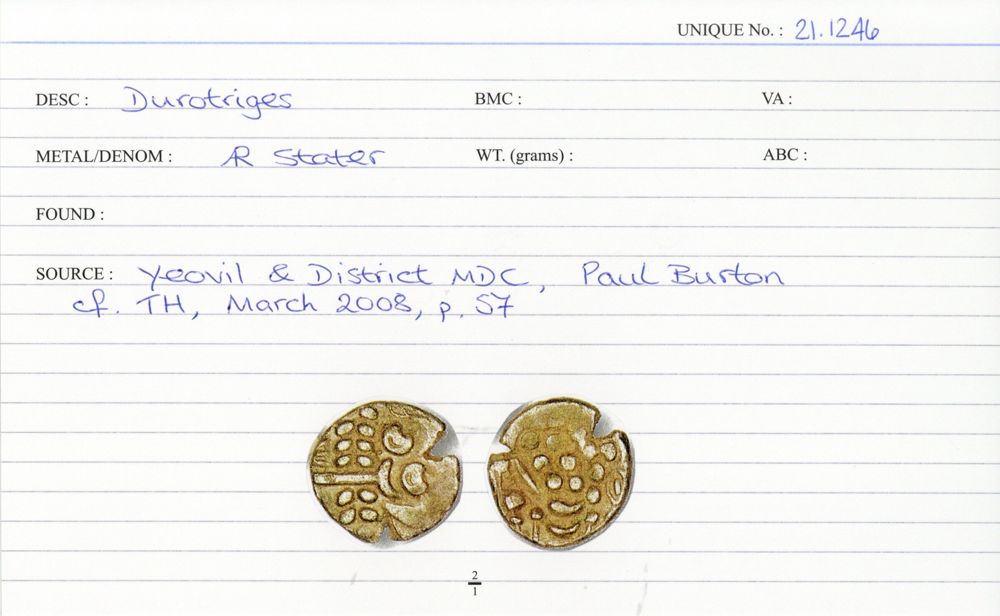 UNIQUE No. : 21.1246
DESC : Durotriges BMC : VA :
METAL/DENOM : AR Stater WT. (grams) : ABC :
FOUND :
SOURCE : Yeovil & District MDC, Paul Burton
cf. TH, March 2008, p. 57
2
1